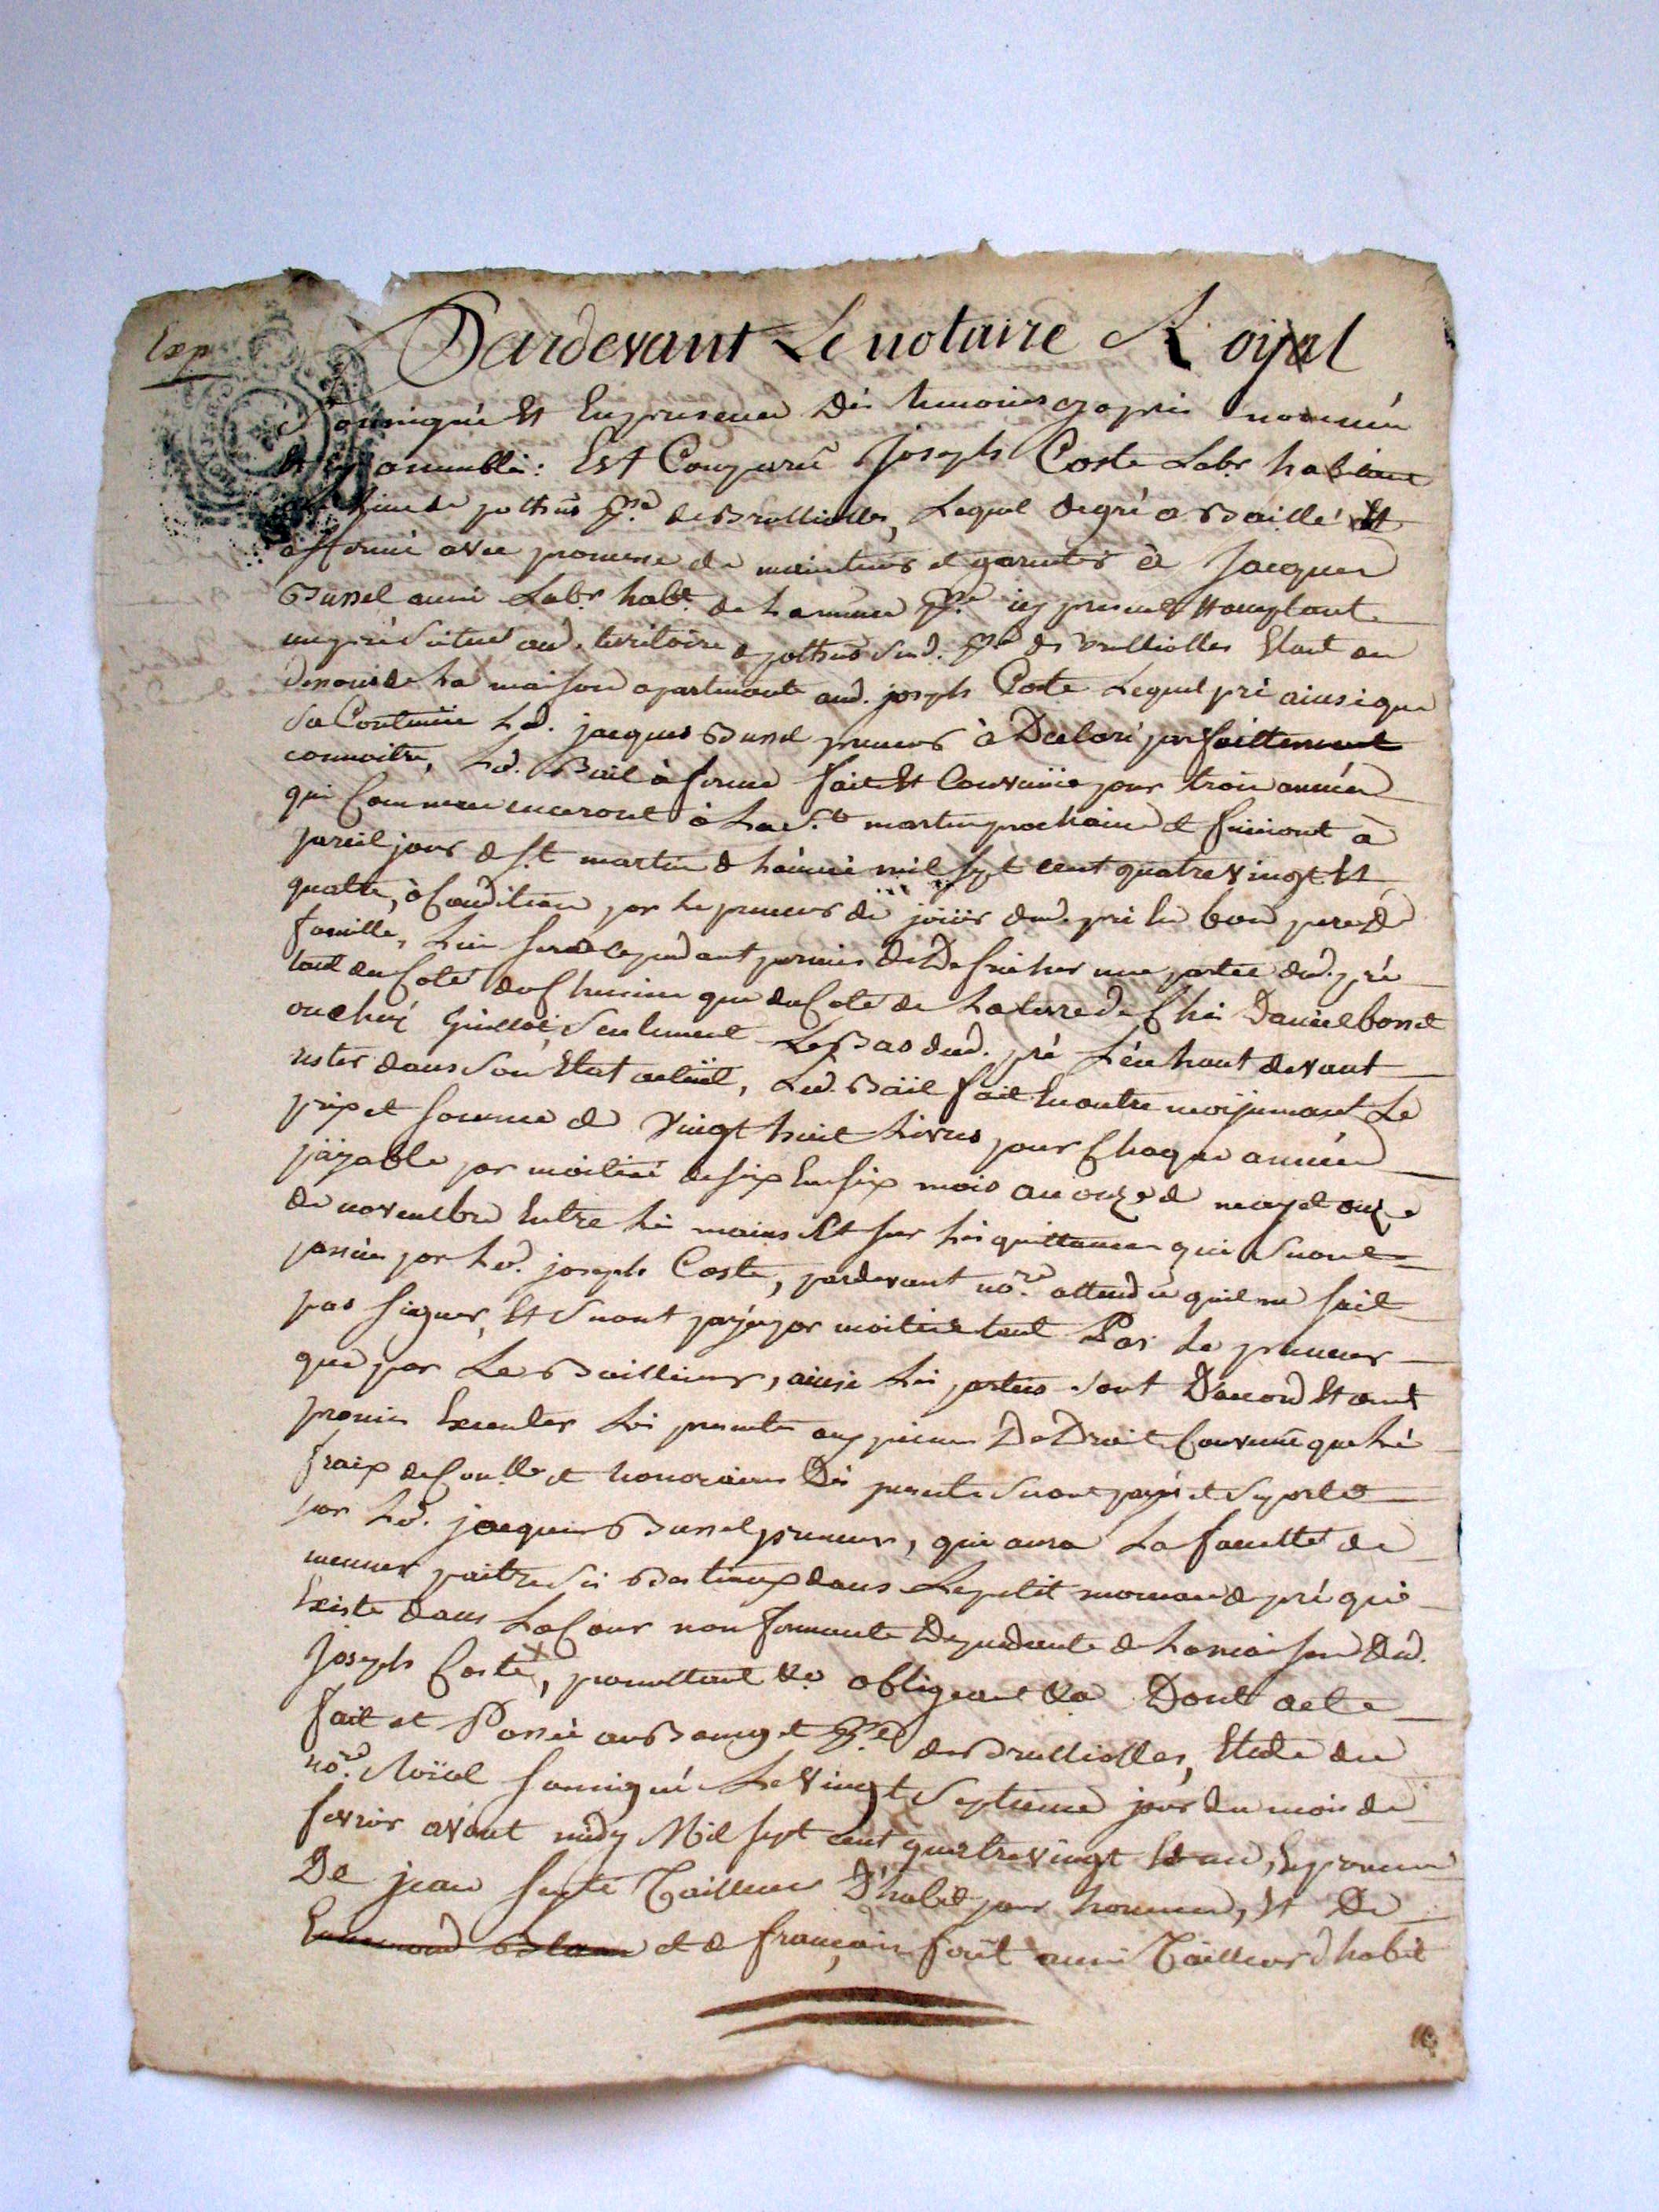 Exp
Pardevant Le notaire Royal
Soussigné Et En presence Dés temoins cy apres nommés
Et assemblés : Est Comparû Joseph Coste Labr. habitant
psse. de Brullioles, Lequel de gré a Baillé Et
affermé avec promesse de maintenir et garentir à Jacques
Bunel aussi Labr. habt. de psse. icy present Et acceptant
un pré Situé aud. territoire de Sud. psse. de Brullioles Etant au
Dessous de La maison apartenante aud. joseph Coste Lequel pré ainsi que
Sa Contenüe Led. jacques Bunel preneur à Déclaré parfaittement
connoitre, Led. Bail à ferme fait Et Convenüe pour trois années
qui Commenceront à La St. martin prochaine et finiront à
pareil jour de St. martin de Lánnée mil sept cent quatre vingt Et
quatre, à Condition par Le preneur de joüir dud. pré En bon pere de
famille, Lui sera cependant permis de Defricher une partie dud. pré
tant du Coté du Chemin que du Coté de La terre de Chés Daniel bonet
ou chés Guillot, Seulement Le Bas dud. pré Léu haut devant
rester dans Son Etat actuel, Led. Bail fait En outre moijenant Le
prix et somme de Vingt huit Livres pour Chaque année
païable par moitié de six En six mois au onze de may et onze
de novembre Entre Les mains Et sur Les quittances qui Seront
passées par Led. joseph Coste, pardevant nore. attendû qu'il ne sait
pas signer, Et Seront payées par moitié tant Par Le preneur
que par Le Bailleur, ainsi Les parties Sont D'accord Et ont
promis Executer Les presentes aux peines De Droit Convenû que Les
fraix de Conlle. et honoraires Des presentes Seront payés et Suportés
par Led. jacques Bunel preneur, qui aura La faculté de
menner paitre Ses Bestiaux dans Le petit morceau de pré qui
Existe dans La Cour non fermante Dependante de La maison Dud.
Joseph Coste, promettant &a. obligeant &a. Dont acte
fait et Passé au Bourg et psse. de Brullioles, Etude du
nore. Roïal soussigné Le Vingt Septieme jour du mois de
fevrier avant midy Mil sept cent quatre vingt Et un, En presence
De jean Tailleur D'habit pour hommes, Et De
et de françois fort aussi Tailleur d'habit